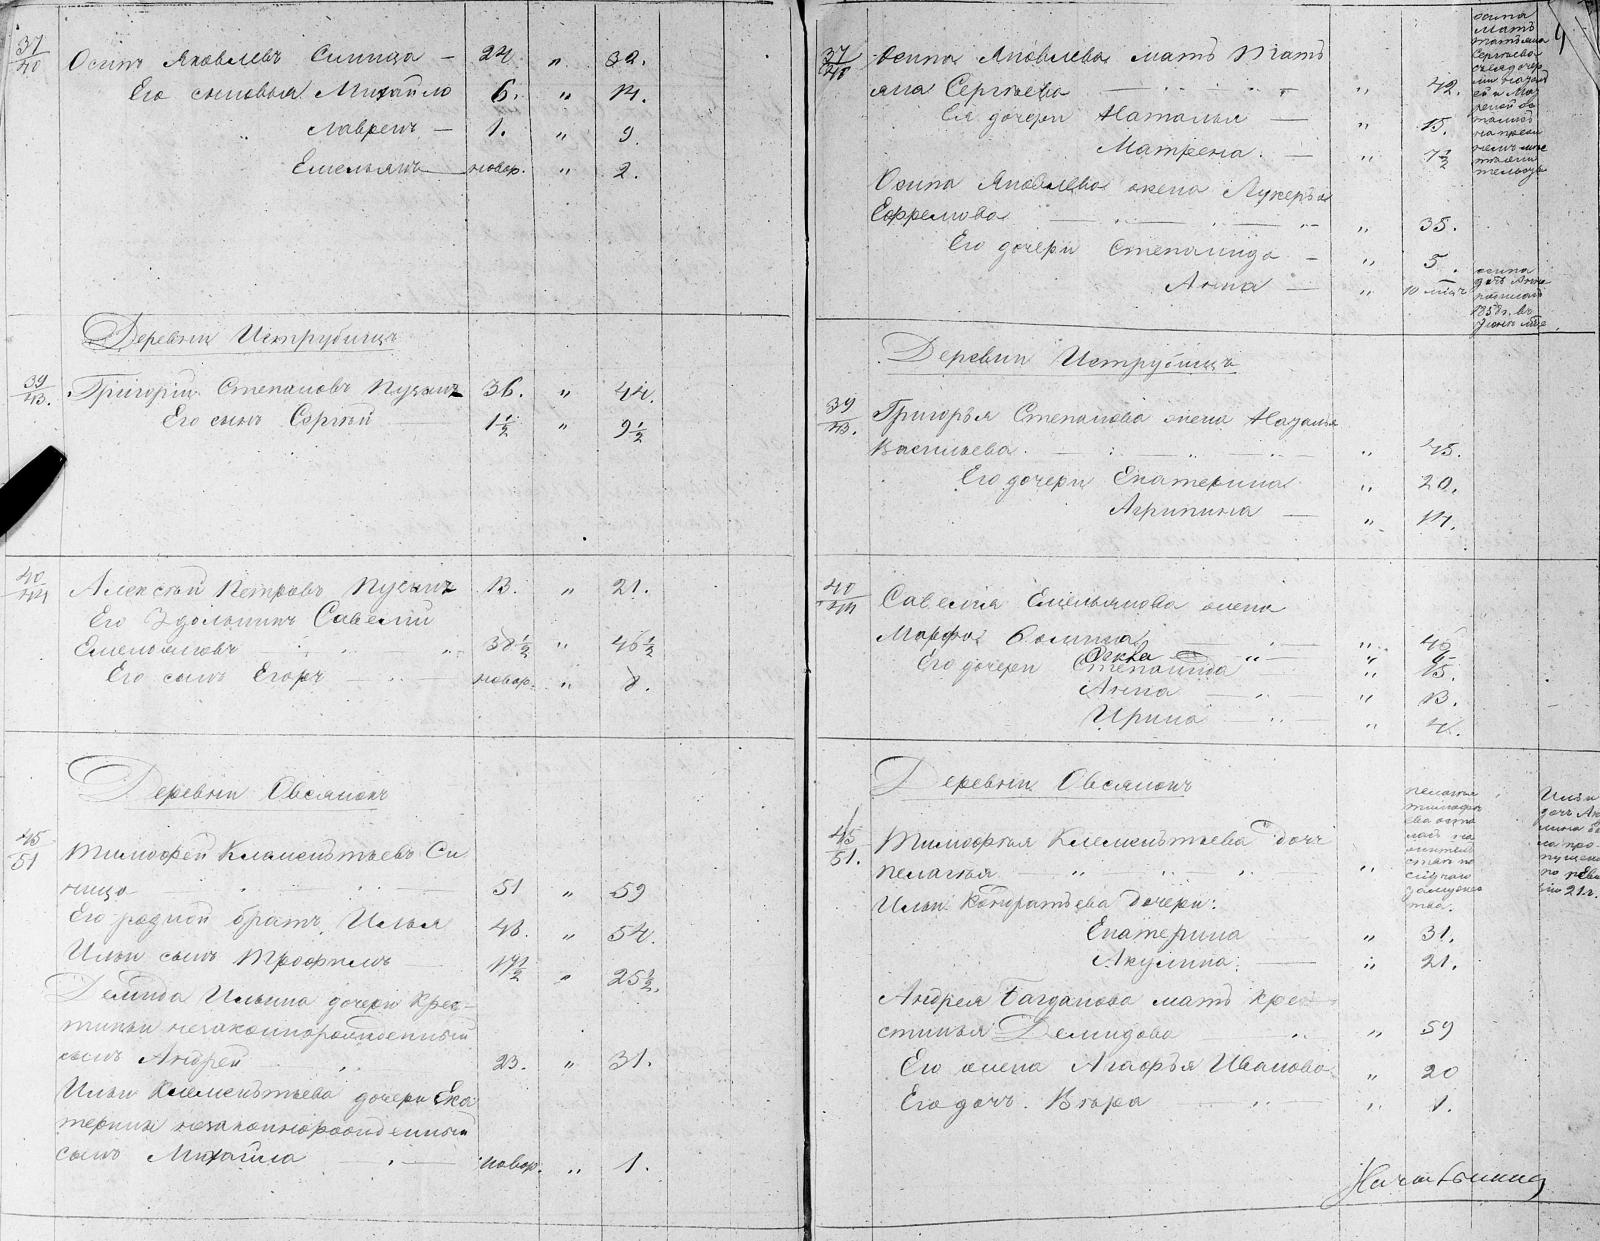 37/40 Осипъ Яковлевъ Синица — 24. " 32.
Его сыновья Михайло 6. " 14.
Лаврен — 1. " 9.
Емельянъ новор. " 2.
Деревни Иструбищъ
39/43. Григорій Степановъ 36. " 44.
Его сынъ Сергѣй 1½ " 9½
40/44 Алексѣй Петровъ 13. " 21.
Его Здольникъ Савелій
Емельяновъ 38½ " 46½
Его сынъ Егоръ новор. " 8.
Деревни Овсянокъ
45/51 Тимофей Клементьевъ Си
ница 51 " 59
Его родной братъ Илья 46. " 54.
Ильи сынъ Трофимъ 17½ " 25½.
Демида Ильина дочери Крес-
тиньи незаконнорожденный
сынъ Андрей 23. " 31.
Ильи Клементьева дочери Ека
терины незаконнорожденный
сынъ Михайла новор. " 1.
37/40 Осипа Яковлева мать Тать
яна Сергѣева " 72.
Ея дочери Наталья — " 15.
Матрена. — " 7½
Осипа Яковлева жена Лукерья
Ефремова " 35.
Его дочери Степанида — " 5.
Анна — " 10 мѣс
Осипа
мать
татьяна
Сергѣева
Осипа
дочь Анна
1858 г. въ
Деревни Иструбищъ
39/43. Григорья Степанова жена Наталья
Васильева. " 45.
Его дочери Екатерина " 20.
Агрипина — " 14.
40/44 Савелія Емельянова жена
Марфа " 46
Степанида " 15.
Его дочери
Анна " 13.
Ирина " 4.
Деревни Овсянокъ
45/51. Тимофѣя Клементьева дочь
пелагея "
Ильи Кондратьева дочери:
Екатерина " 31.
Акулина " 21.
Андрея Багданова мать Кре
стинья Демидова " 59
Его жена Агафья Иванова " 20
Его дочь Вѣра " 1.
пелагея
тимофѣ
ева
случаю
замужес
тва.
Ильи
дочь Аку
лина бы
ла про-
пущена
по реви
зіи 21 г.